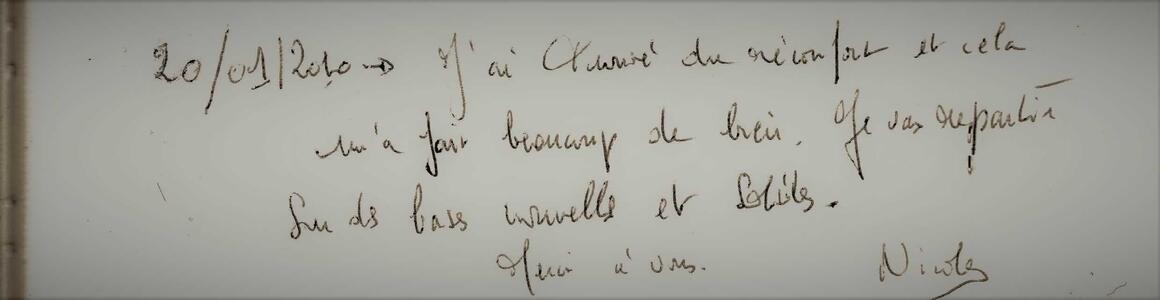 20/01/2010 → J'ai trouvé du réconfort et cela
m'a fait beaucoup de bien. Je vais repartir
sur des bases nouvelles et solides.
Merci à vous. Nicolas